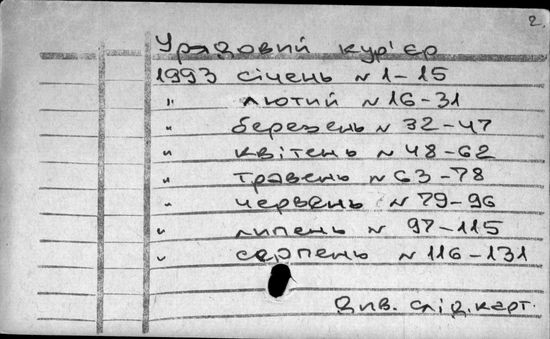 2.
Урядовий кур'єр
1993 січень N 1-15
" лютий N 16-31
" березень N 32-47
" квітень N 48-62
" травень N 63-78
" червень N 79-96
" липень N 97-115
" серпень N 116-131
Див. слід. карт.